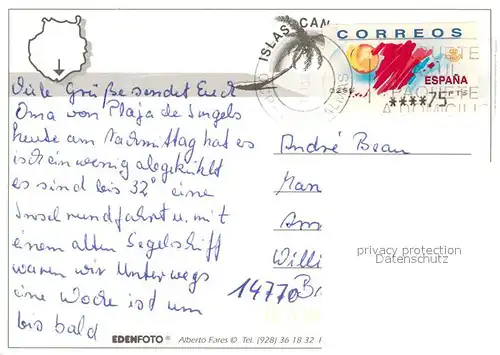 ISLAS CAN
CORREOS
ESPAÑA
0256
****75 PTS
Viele Grüße sendet Euch
Oma von Playa de Ingels
heute am Nachmittag hat es
ein wenig abgekühlt
es sind bis 32° eine
Inselrundfahrt u. mit
einem alten Segelschiff
waren wir Unterwegs
eine Woche ist um
bis bald
André
Man
Am
Willi
14770 Br
privacy protection
Datenschutz
EDENFOTO® Alberto Fares © Tel. (928) 36 18 32